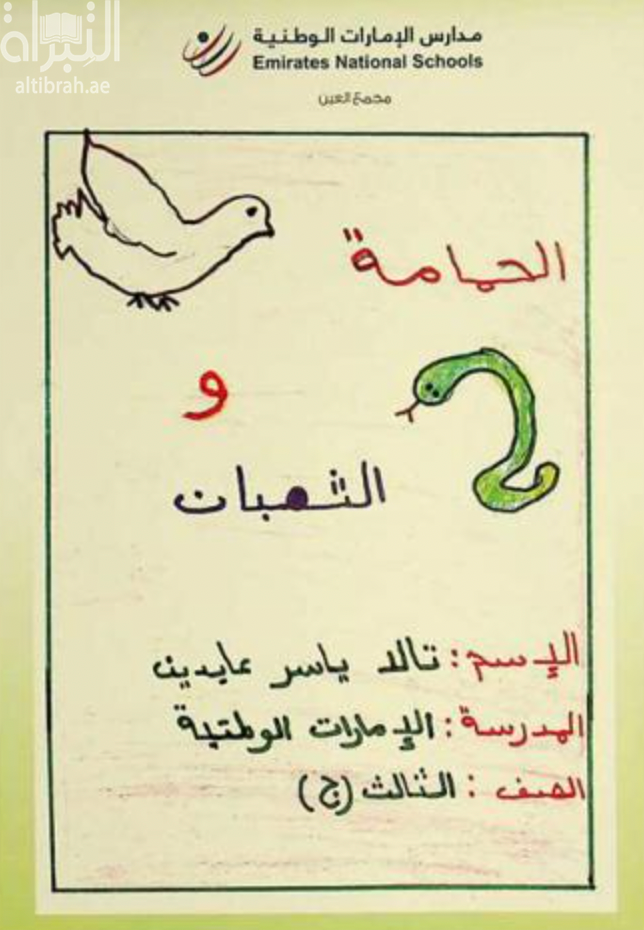 التبراة
altibrah.ae
مدارس الإمارات الوطنية
Emirates National Schools
مجمع العين
الحمامة
و
الثعبان
الإسم : تالا ياسر عابدين
المدرسة : الإمارات الوطنية
الصف : الثالث (ج)